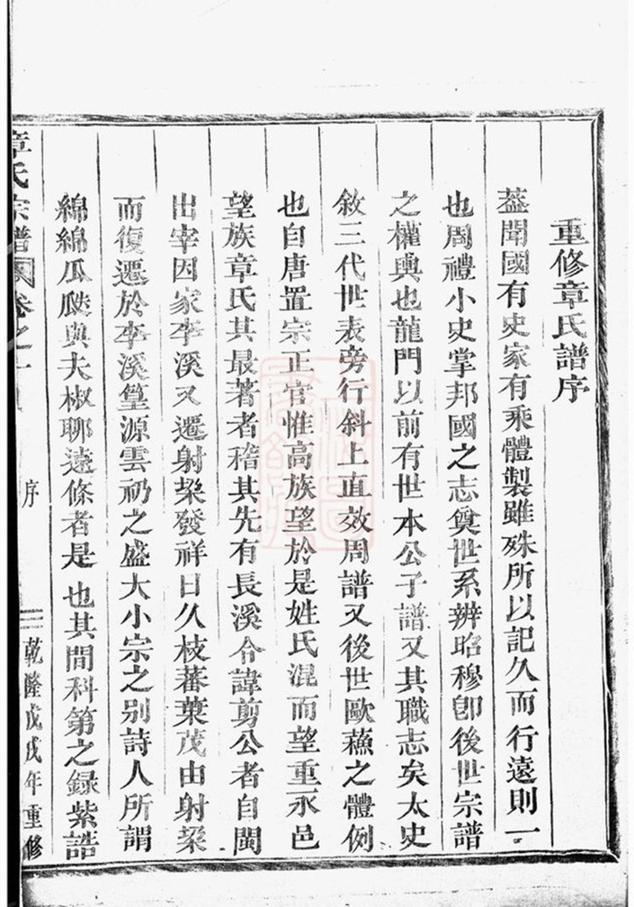 重修章氏譜序
蓋聞國有史家有乘體製雖殊所以記久而行遠則一
也周禮小史掌邦國之志奠世系辨昭穆卽後世宗譜
之權輿也龍門以前有世本公子譜又其職志矣太史
敘三代世表旁行斜上直效周譜又後世歐蘇之體例
也自唐置宗正官惟高族望於是姓氏混而望重永邑
望族章氏其最著者稽其先有長溪令諱剪公者自閩
出宰因家李溪又遷射梁發祥日久枝蕃葉茂由射梁
而復遷於李溪篁源雲礽之盛大小宗之別詩人所謂
綿綿瓜瓞與夫椒聊遠條者是也其間科第之錄紫誥
章氏宗譜 卷之一 序 乾隆戊戌年重修